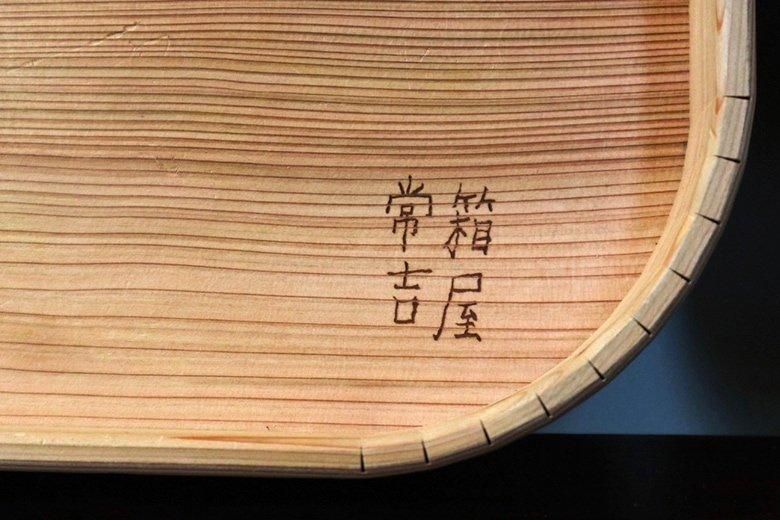 箱屋
常吉